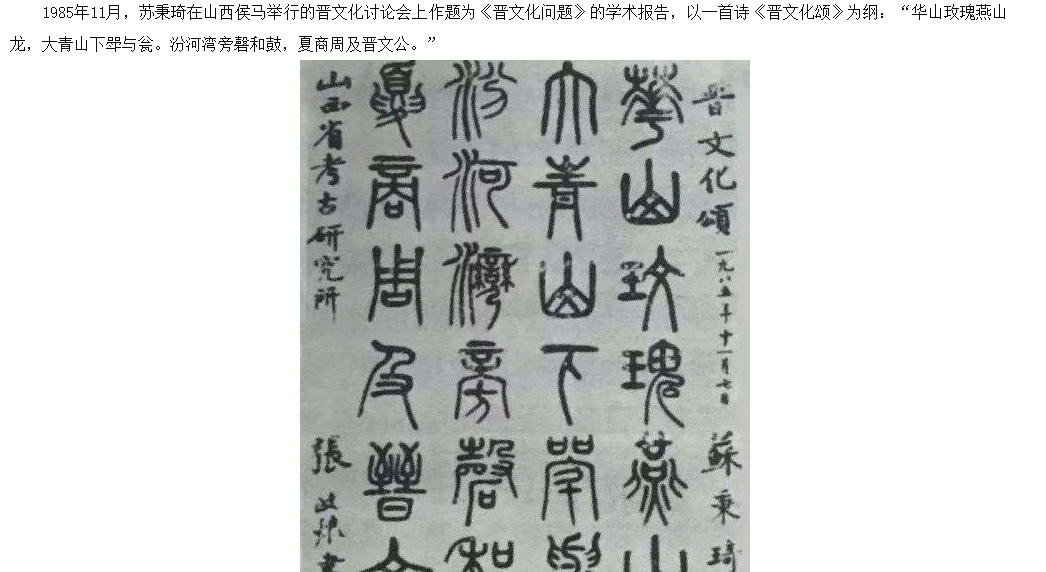 1985年11月，苏秉琦在山西侯马举行的晋文化讨论会上作题为《晋文化问题》的学术报告，以一首诗《晋文化颂》为纲：“华山玫瑰燕山
龙，大青山下斝与瓮。汾河湾旁磬和鼓，夏商周及晋文公。”
晋文化頌 一九八五年十一月七日 蘇秉琦
華山玫瑰燕山
大青山下斝與
汾河灣旁磬和
夏商周及晉文
山西省考古研究所 張